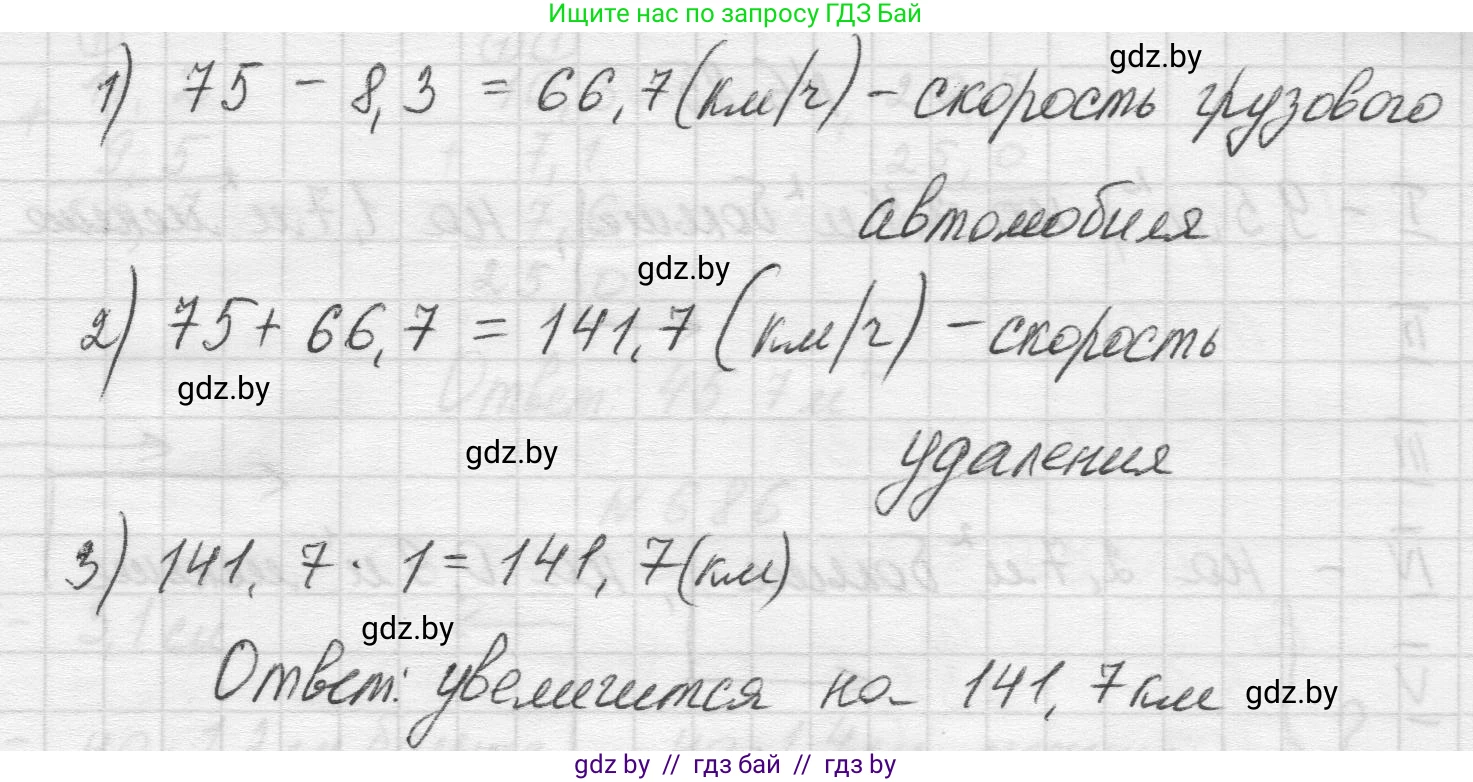 Ищите нас по запросу ГДЗ Бай
1) 75 - 8,3 = 66,7 (км/ч) - скорость грузового
gdz.by
автомобиля
gdz.by
2) 75 + 66,7 = 141,7 (км/ч) - скорость
gdz.by
удаления
gdz.by
3) 141,7 · 1 = 141,7 (км)
gdz.by
Ответ: увеличится на 141,7 км
gdz.by
gdz by // гдз бай // гдз by